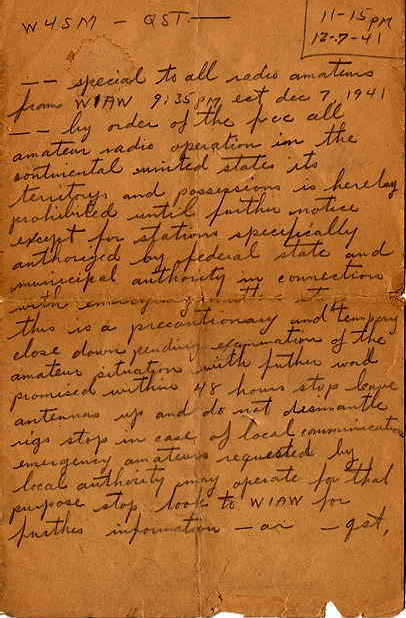 W4SM — QST. —
11-15 PM
12-7-41
—— special to all radio amateurs
from W1AW 9:35 PM est dec 7, 1941
—— by order of the fcc all
amateur radio operation in the
continental united states its
territory and possessions is hereby
prohibited until further notice
except for stations specifically
authorized by federal state and
municipal authority in connection
with
this is a precautionary and tempory
close down pending examination of the
amateur situation with futher word
promised within 48 hours stop leave
antennas up and do not dismantle
rigs stop in case of local communication
emergency amateurs requested by
local authority may operate for that
purpose stop look to W1AW for
further information — ar — qst.